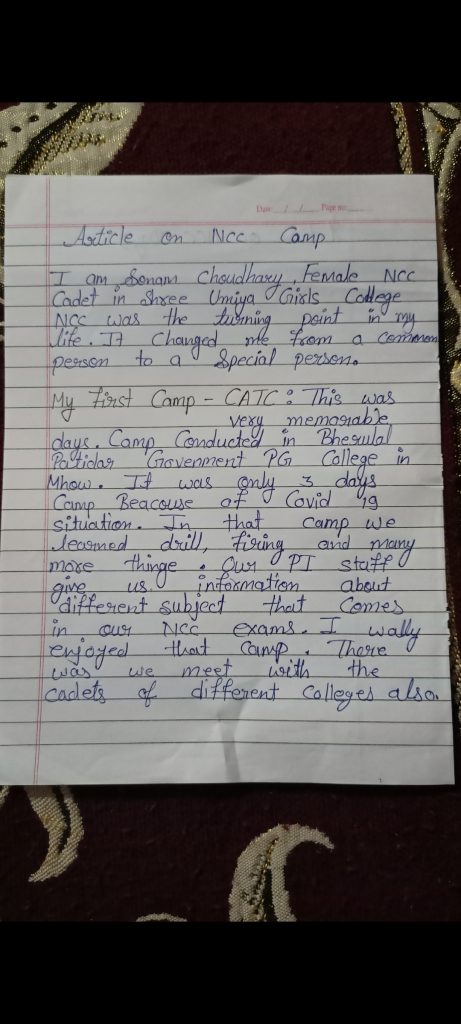 Date __/__/__ Page no.____
Article on Ncc Camp
I am Sonam Choudhary, Female NCC
Cadet in Shree Umiya Girls College
NCC was the turning point in my
life. It changed me from a common
person to a Special person.
My First Camp - CATC : This was
very memorable
days. Camp Conducted in Bherulal
Patidar Govenment PG College in
Mhow. It was only 3 days
Camp Beacouse of Covid 19
situation. In that camp we
learned drill, firing and many
more thinge. Our PI staff
give us information about
different subject that Comes
in our NCC exams. I wally
enjoyed that Camp. There
was we meet with the
cadets of different Colleges also.